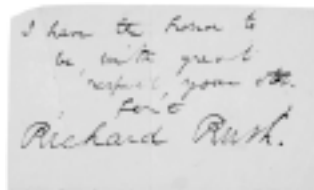 I have the honor to
be, with great
respect, your obt.
Servt
Richard Rush.